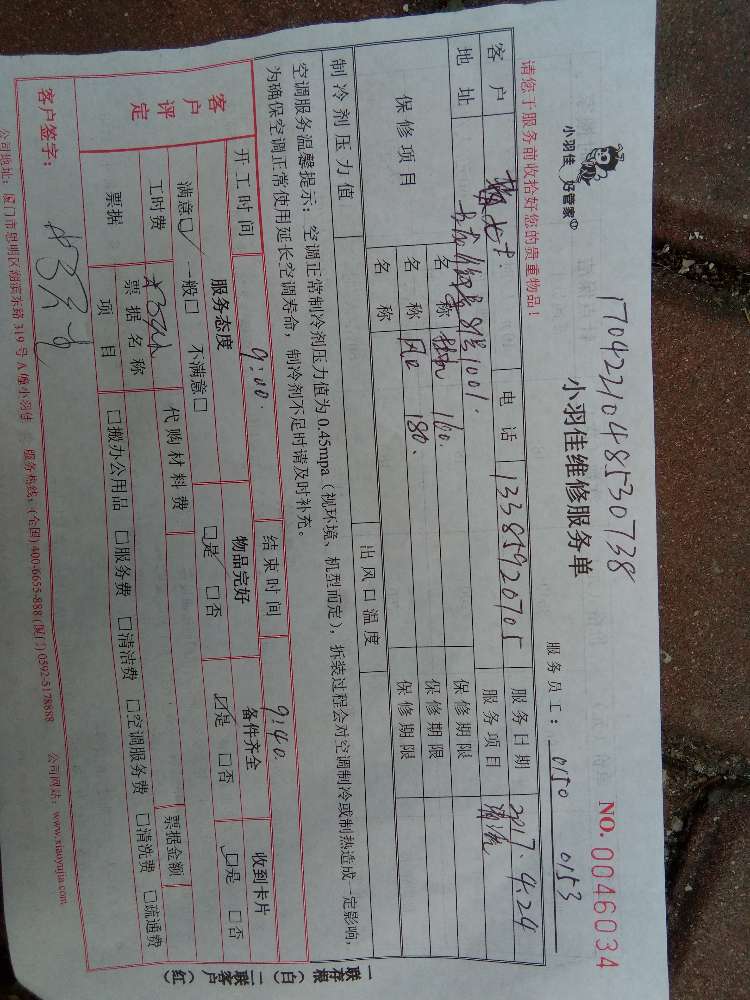 1704221048530738
小羽佳 好管家
小羽佳维修服务单
NO. 0046034
请您于服务前收拾好您的贵重物品！
服务员工： 0150 0153
客户 电话 13385920705 服务日期 2017.4.24
地址 81号1001. 服务项目 清洗
保修项目 名称 160. 保修期限
名称 风口 180. 保修期限
名称 保修期限
制冷剂压力值 出风口温度
空调服务温馨提示：空调正常制冷剂压力值为0.45mpa（视环境、机型而定），拆装过程会对空调制冷或制热造成一定影响，
为确保空调正常使用延长空调寿命，制冷剂不足时请及时补充。
开工时间 9:00. 结束时间 9:40.
客户评定 服务态度 物品完好 备件齐全 收到卡片
满意□✓ 一般□ 不满意□ □是 □否 ☑是 □否 □是 □否
工时费 代购材料费 票据金额
票据 票据名称
项目 □搬办公用品 □服务费 □清洁费 □空调服务费 □清洗费 □疏通费
客户签字：
公司地址：厦门市思明区湖滨东路319号A幢小羽佳 服务热线：(全国) 400-6655-888 (厦门) 0592-5178888 公司网站：www.xiaoyujia.com
一联存根（白） 二联客户（红）